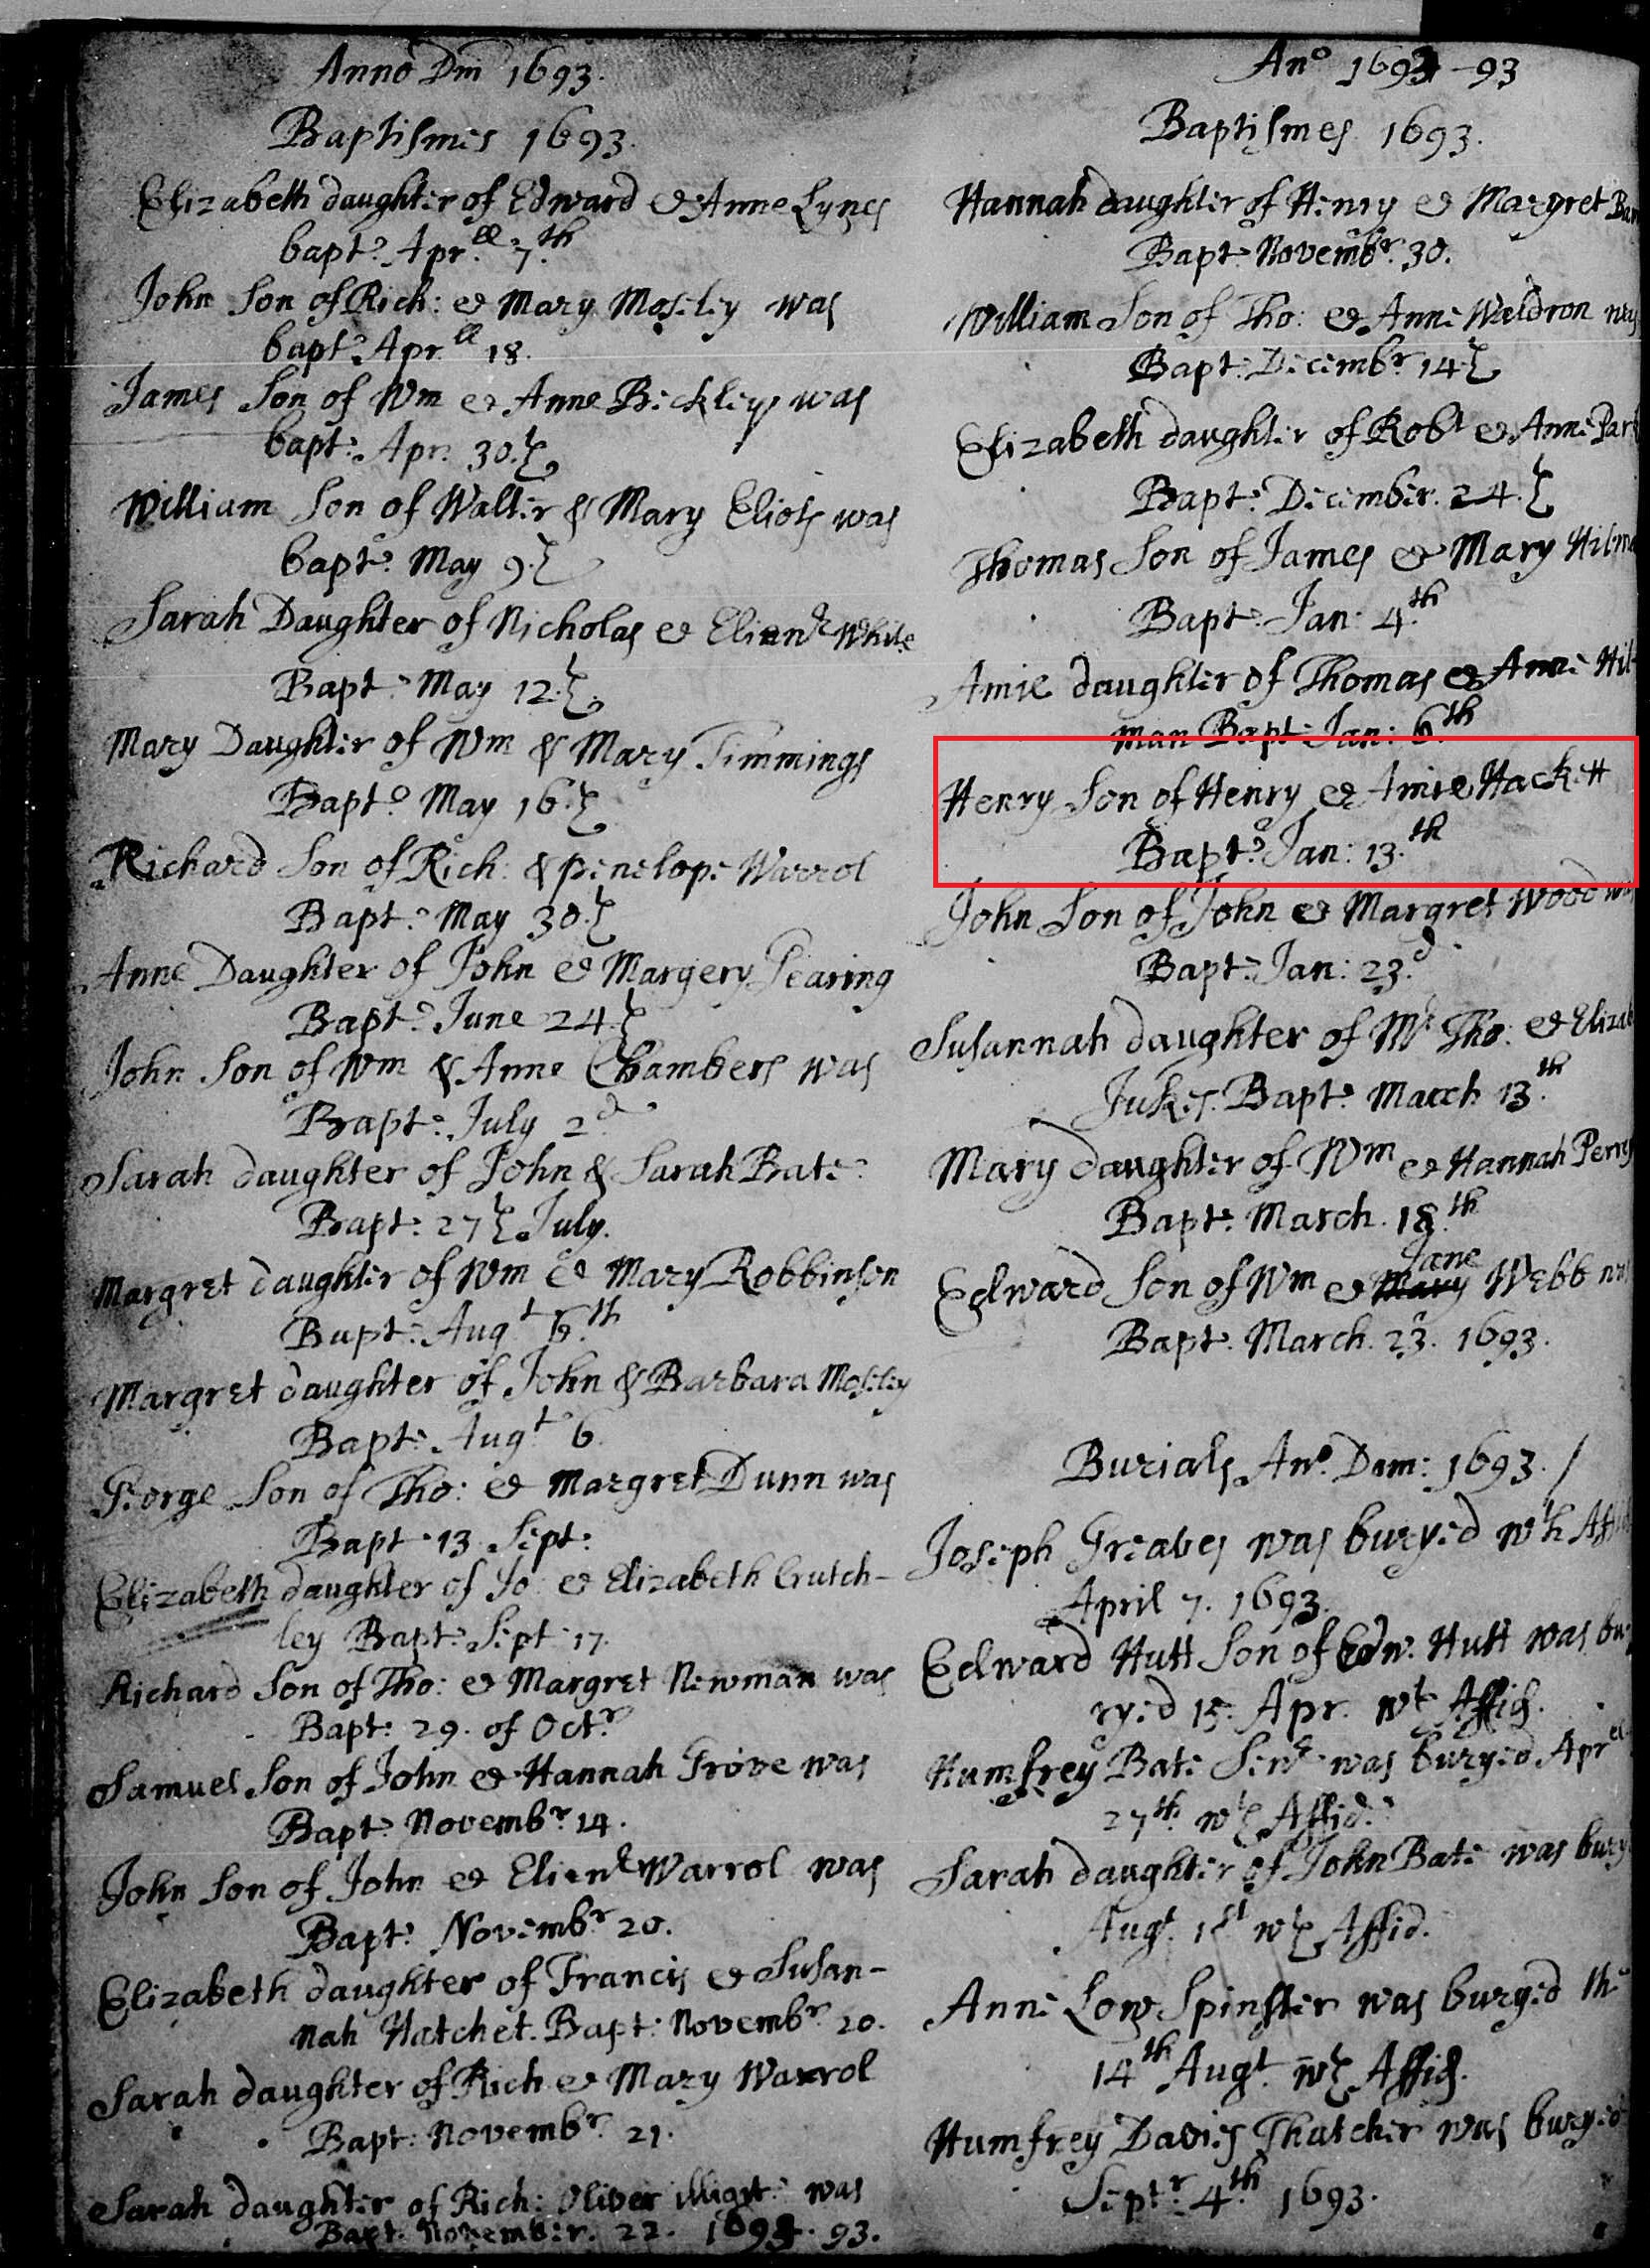 Anno Dm 1693.
Baptismes 1693.
Elizabeth daughter of Edward & Anne Lynes
bapt: Aprll 7th
John Son of Rich: & Mary Moseley was
bapt: Aprll 18.
James Son of Wm & Anne Bickley was
bapt: Apr: 30.
William Son of Walter & Mary Eliots was
bapt: May 9.
Sarah Daughter of Nicholas & Elienr White
Bapt: May 12.
Mary Daughter of Wm & Mary Timmings
Bapt: May 16.
Richard Son of Rich: & penelope Warrol
Bapt: May 30.
Anne Daughter of John & Margery Pearing
Bapt: June 24.
John Son of Wm & Anne Chambers was
Bapt: July 2d
Sarah daughter of John & Sarah Bate
Bapt: 27 July.
Margret daughter of Wm & Mary Robbinson
Bapt: Augt 6th
Margret daughter of John & Barbara Moseley
Bapt: Augt 6
George Son of Tho: & Margret Dunn was
Bapt: 13 Sept:
Elizabeth daughter of Jo: & Elizabeth Crutch-
ley Bapt: Sept: 17.
Richard Son of Tho: & Margret Newman was
Bapt: 29. of Octr
Samuel Son of John & Hannah Grove was
Bapt: Novembr 14.
John Son of John & Elienr Warrol was
Bapt: Novembr 20.
Elizabeth daughter of Francis & Susan-
nah Hatchet. Bapt: Novembr 20.
Sarah daughter of Rich & Mary Warrol
Bapt: Novembr 21.
Sarah daughter of Rich: Oliver illigit: was
Bapt: November. 22. 93.
Ano -93
Baptismes 1693.
Hannah daughter of Henry & Margret
Bapt: Novembr 30.
William Son of Tho: & Anne Waldron was
Bapt: Decembr 14
Elizabeth daughter of Robt & Anne
Bapt: December. 24.
Thomas Son of James & Mary
Bapt: Jan: 4th
Amie daughter of Thomas & Anne Hil-
man Bapt: Jan: 6th
Henry Son of Henry & Amie Hackett
Bapt: Jan: 13.th
John Son of John & Margret Wood was
Bapt: Jan: 23.d
Susannah daughter of Mr Tho: &
Jukes. Bapt: March 13th.
Mary daughter of Wm & Hannah Perry
Bapt: March. 18th
Jane
Edward Son of Wm & Mary Webb was
Bapt: March. 23. 1693.
Burials Ano. Dom: 1693.
Joseph Greaves was buryed wth
April 7. 1693.
Edward Hutt Son of Edw: Hutt was bu-
ryed 15. Apr. wth Affid.
Humfrey Bate Senr was buryed Aprll
27th wth Affid.
Sarah daughter of John Bate was
Augt. 1st wth Affid.
Anne Low Spinster was buryed the
14th Augt wth Affid.
Humfrey Davies Thatcher was buryed
Septr 4th 1693.